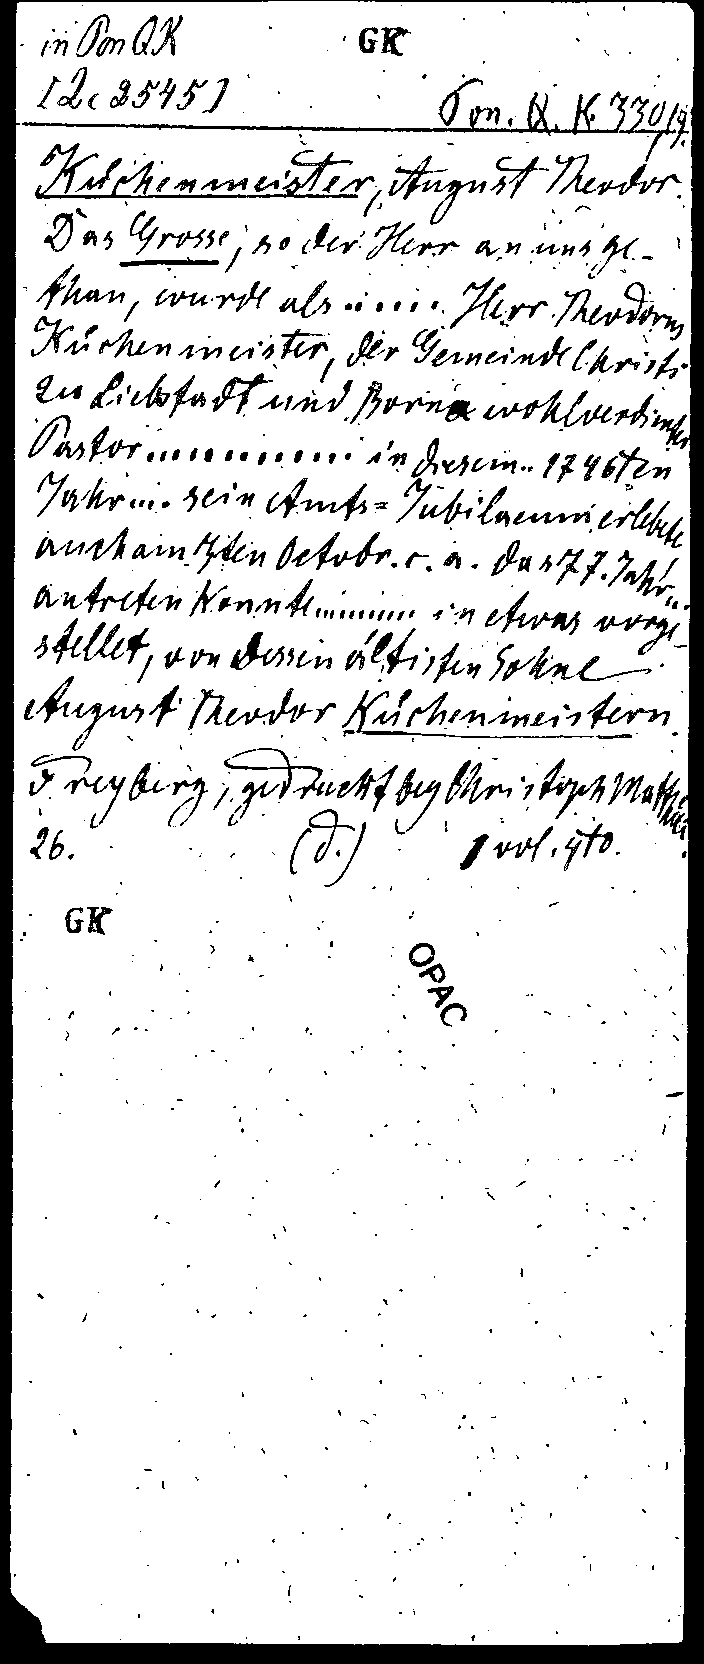 in Pon QK GK
[2c 2545]
Pon. Q. K. 330,19.
Küchenmeister, August Theodor.
Das Grosse, so der Herr an uns ge-
than, wurde als ..... Herr Theodorus
Küchenmeister, der Gemeinde Christi
zu Liebstadt und Borna wohlverdienter
Pastor ............ in diesem .. 1746ten
Jahr .... sein Amts= Jubilaeum erlebete
auch am 7ten Octobr. c. a. das 77. Jahr ...
antreten konnte ......... in etwas vorge-
stellet, von dessen ältisten Sohne
August Theodor Küchenmeistern.
Freyberg, gedruckt bey Christoph Matthäi.
26. (d.) 1 vol. 4to.
GK
OPAC